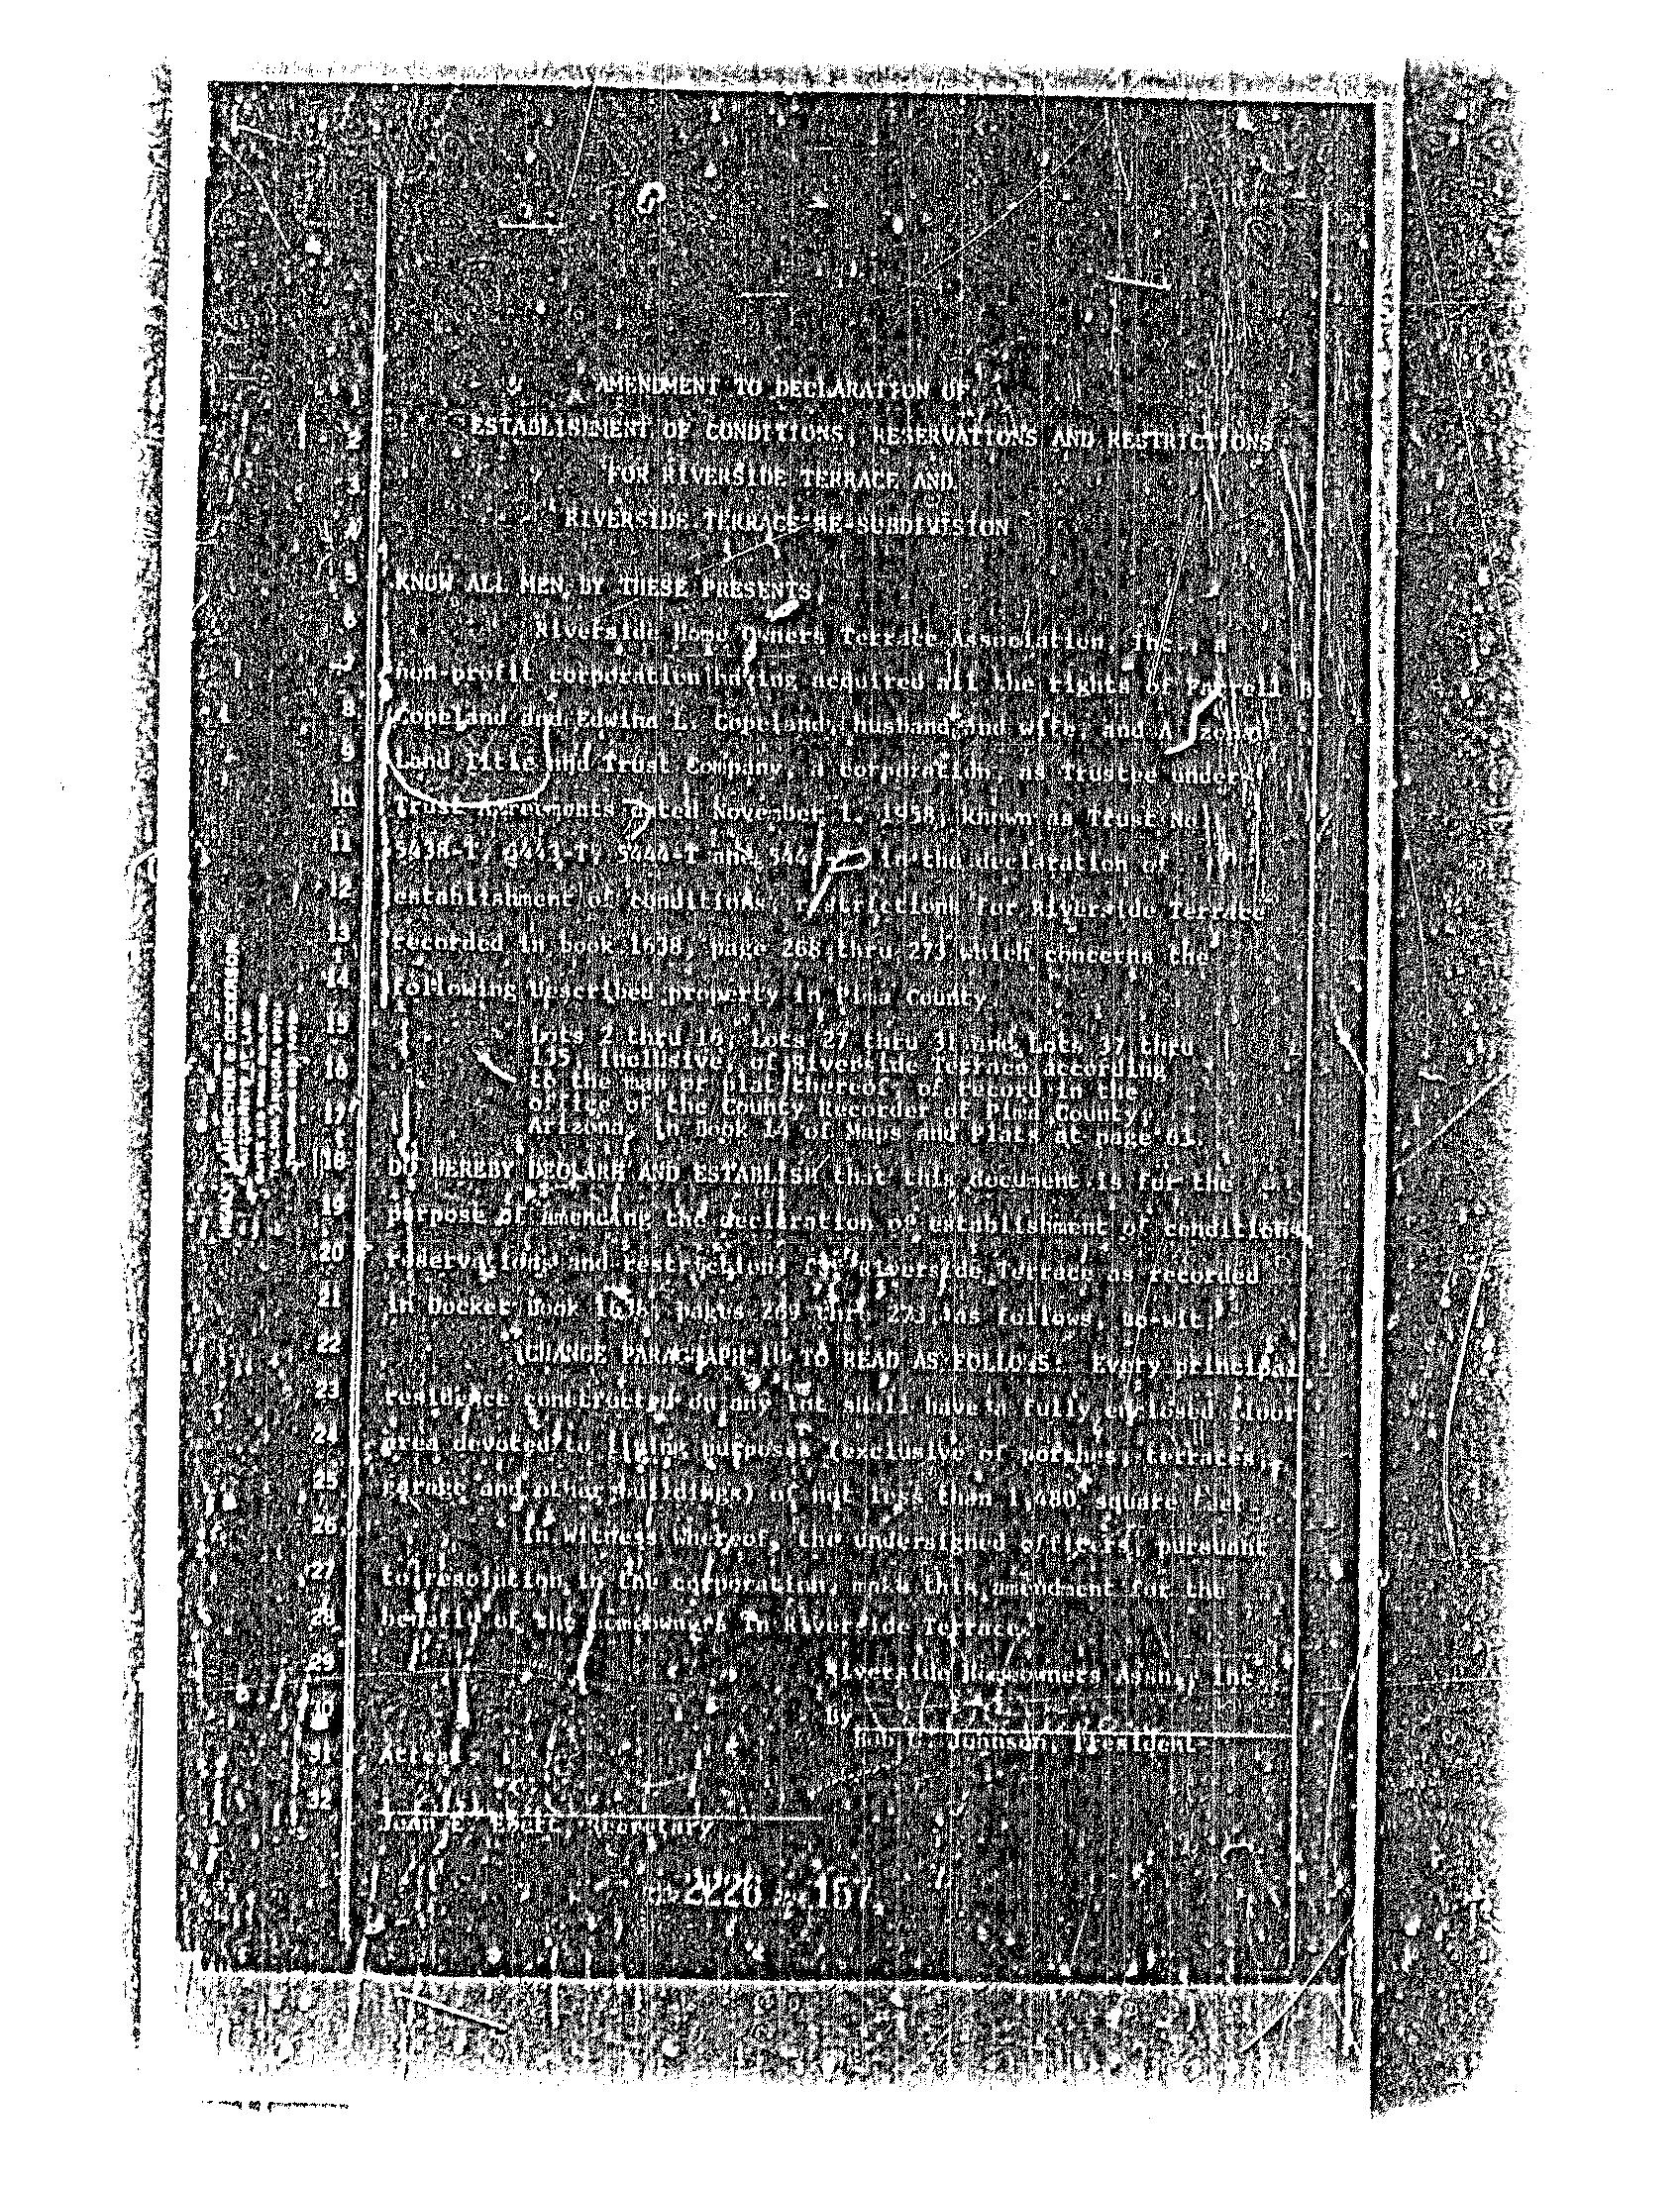 AMENDMENT TO DECLARATION OF
ESTABLISHMENT OF CONDITIONS, RESERVATIONS AND RESTRICTIONS
FOR RIVERSIDE TERRACE AND
RIVERSIDE TERRACE RE-SUBDIVISION
KNOW ALL MEN BY THESE PRESENTS
Riverside Home Owners Terrace Association, Inc., a
non-profit corporation having acquired all the rights of
Copeland and Edwina L. Copeland, husband and wife, and Arizona
Land Title and Trust Company, a corporation, as Trustee under
Trust Agreements dated November 1, 1958, known as Trust No.
5444-T and in the declaration of
establishment of conditions, restrictions for Riverside Terrace
recorded in book 1638, page 268 thru 273 which concerns the
following described property in Pima County
Lots 2 thru 18 Lots 27 thru 31 and Lots 37 thru
135, inclusive, of Riverside Terrace according
to the map or plat thereof, of record in the
office of the County Recorder of Pima County,
Arizona, in Book 14 of Maps and Plats at page 61.
DO HEREBY DECLARE AND ESTABLISH that this document is for the
purpose of amending the declaration of establishment of conditions,
reservations and restrictions for Riverside Terrace as recorded
in Docket Book 1638, pages thru 273 as follows, to-wit:
CHANGE PARAGRAPH 10 TO READ AS FOLLOWS: Every principal
residence constructed on any lot shall have a fully enclosed floor
area devoted to living purposes (exclusive of porches, terraces,
garage and other buildings) of not less than square feet
In witness whereof, the undersigned officers, pursuant
to resolution by the corporation, make this amendment for the
benefit of the homeowners in Riverside Terrace.
Riverside Homeowners Assn., Inc
By
Johnson, President
Attest:
Secretary
2226 167